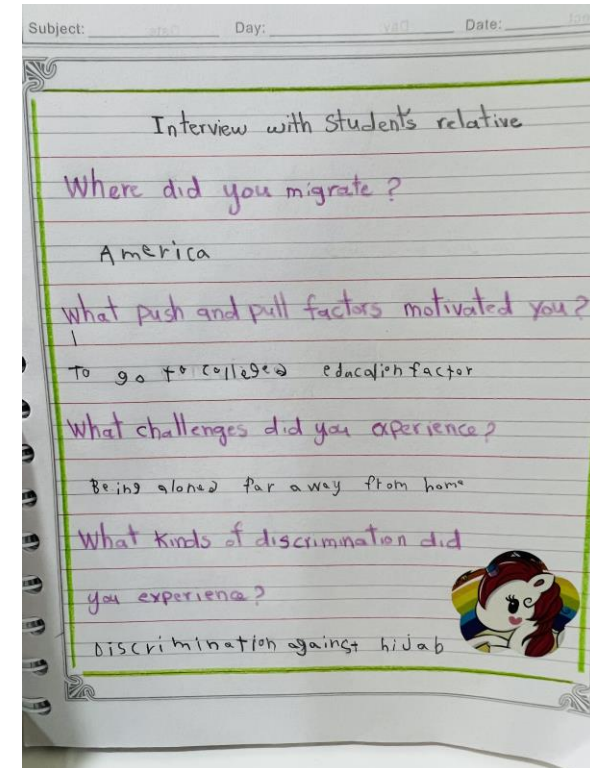 Subject: Day: Date:
Interview with Student's relative
Where did you migrate?
America
What push and pull factors motivated you?
To go to college, education factor
What challenges did you experience?
Being alone, far away from home
What kinds of discrimination did
you experience?
Discrimination against hijab